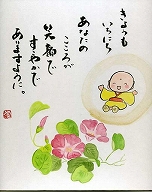 きょうも
いちにち
あなたの
こころが
笑顔で
すこやかで
ありますように。